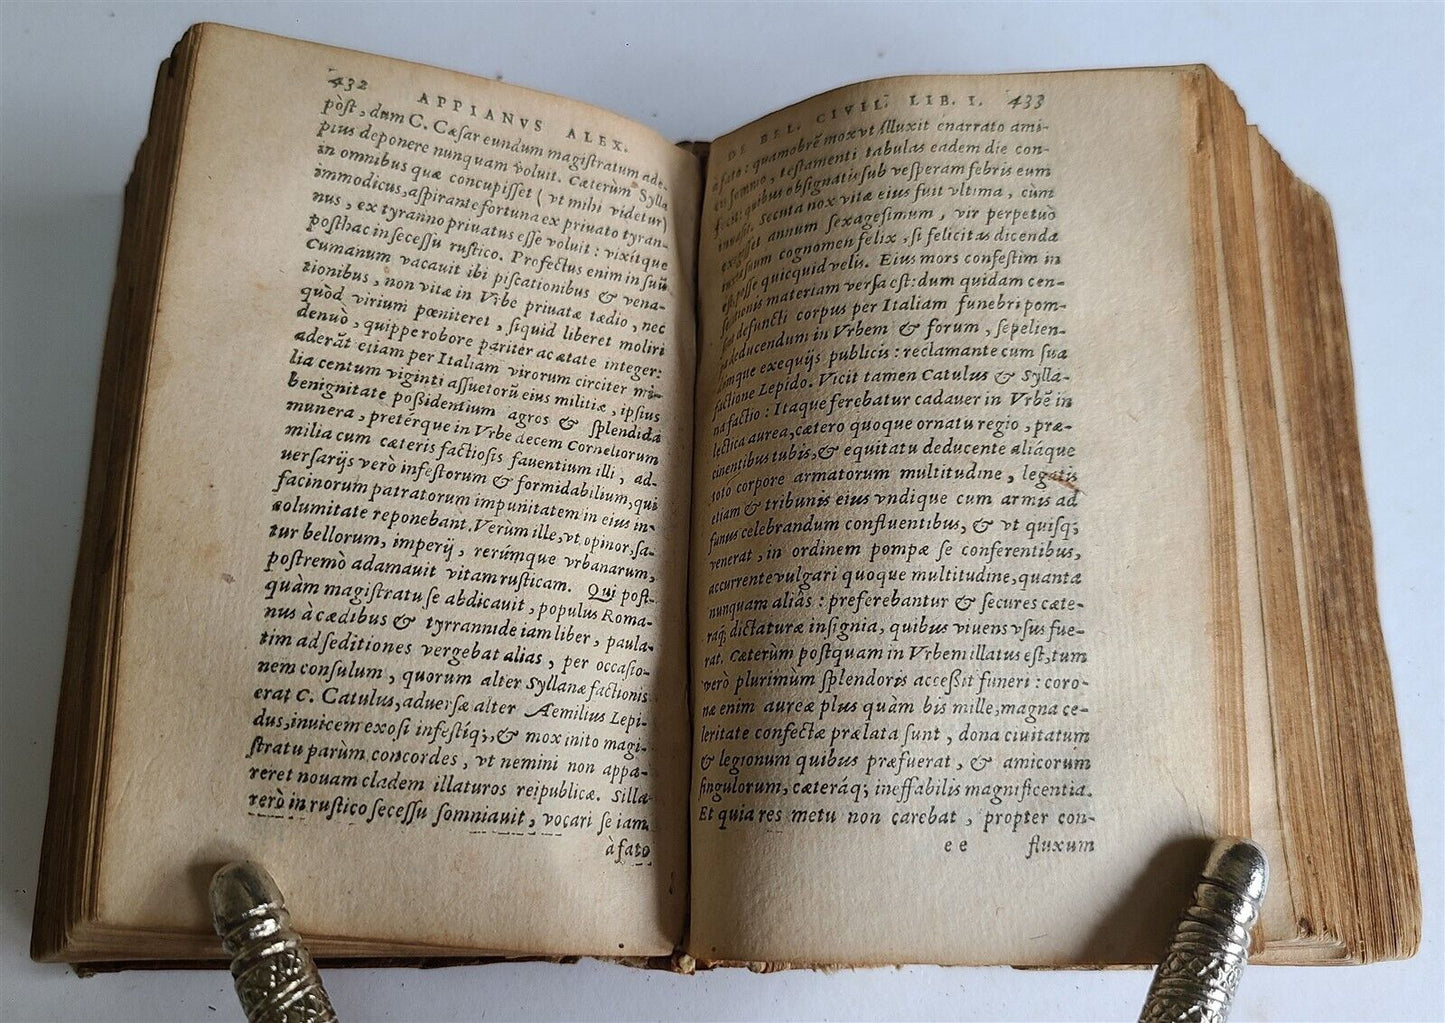 432 APPIANVS ALEX.
pòst, dum C. Cæsar eundum magistratum ade-
ptus deponere nunquam voluit. Cæterùm Sylla
in omnibus quæ concupisset ( vt mihi videtur)
immodicus, aspirante fortuna ex priuato tyran-
nus, ex tyranno priuatus esse voluit : vixitque
posthac in secessu rustico. Profectus enim in suũ
Cumanum vacauit ibi piscationibus & vena-
tionibus, non vitæ in Vrbe priuatæ tædio, nec
quòd virium pœniteret, siquid liberet moliri
denuò, quippe robore pariter ac ætate integer:
aderãt etiam per Italiam virorum circiter mi-
lia centum viginti assuetorũ eius militiæ, ipsius
benignitate possidentium agros & splendida
munera, pretérque in Vrbe decem Corneliorum
milia cum cæteris factiosis fauentium illi, ad-
uersarijs verò infestorum & formidabilium, qui
facinorum patratorum impunitatem in eius in-
columitate reponebant. Verùm ille, vt opinor, sa-
tur bellorum, imperij, rerúmque vrbanarum,
postremò adamauit vitam rusticam. Qui post-
quàm magistratu se abdicauit, populus Roma-
nus à cædibus & tyrrannide iam liber, paula-
tim ad seditiones vergebat alias, per occasio-
nem consulum, quorum alter Syllanæ factionis
erat C. Catulus, aduersæ alter Æmilius Lepi-
dus, inuicem exosi infestíq;, & mox inito magi-
stratu parùm concordes, vt nemini non appa-
reret nouam cladem illaturos reipublicæ. Silla
verò in rustico secessu somniauit, vocari se iam
à fato
DE BEL. CIVIL. LIB. I. 433
à fato : quamobrẽ mox vt illuxit enarrato ami-
cis somno, testamenti tabulas eadem die con-
fecit: quibus obsignatis sub vesperam febris eum
inuasit. Secuta nox vitæ eius fuit vltima, cùm
exegisset annum sexagesimum, vir perpetuò
iuxta suum cognomen felix, si felicitas dicenda
est, posse quicquid velis. Eius mors confestim in
seditionis materiam versa est: dum quidam cen-
sent defuncti corpus per Italiam funebri pom-
pa deducendum in Vrbem & forum, sepelien-
dumque exequijs publicis : reclamante cum sua
factione Lepido. Vicit tamen Catulus & Sylla-
na factio : Itaque ferebatur cadauer in Vrbẽ in
lectica aurea, cætero quoque ornatu regio, præ-
cinentibus tubis, & equitatu deducente aliáque
toto corpore armatorum multitudine, legatis
etiam & tribunis eius vndique cum armis ad
funus celebrandum confluentibus, & vt quisq;
venerat, in ordinem pompæ se conferentibus,
accurrente vulgari quoque multitudine, quanta
nunquam aliâs : preferebantur & secures cæte-
raq; dictaturæ insignia, quibus viuens vsus fue-
rat. Cæterùm postquam in Vrbem illatus est, tum
verò plurimùm splendoris accessit funeri : coro-
næ enim aureæ plus quàm bis mille, magna ce-
leritate confectæ prælata sunt, dona ciuitatum
& legionum quibus præfuerat, & amicorum
singulorum, cæteráq; ineffabilis magnificentia.
Et quia res metu non carebat, propter con-
e e fluxum